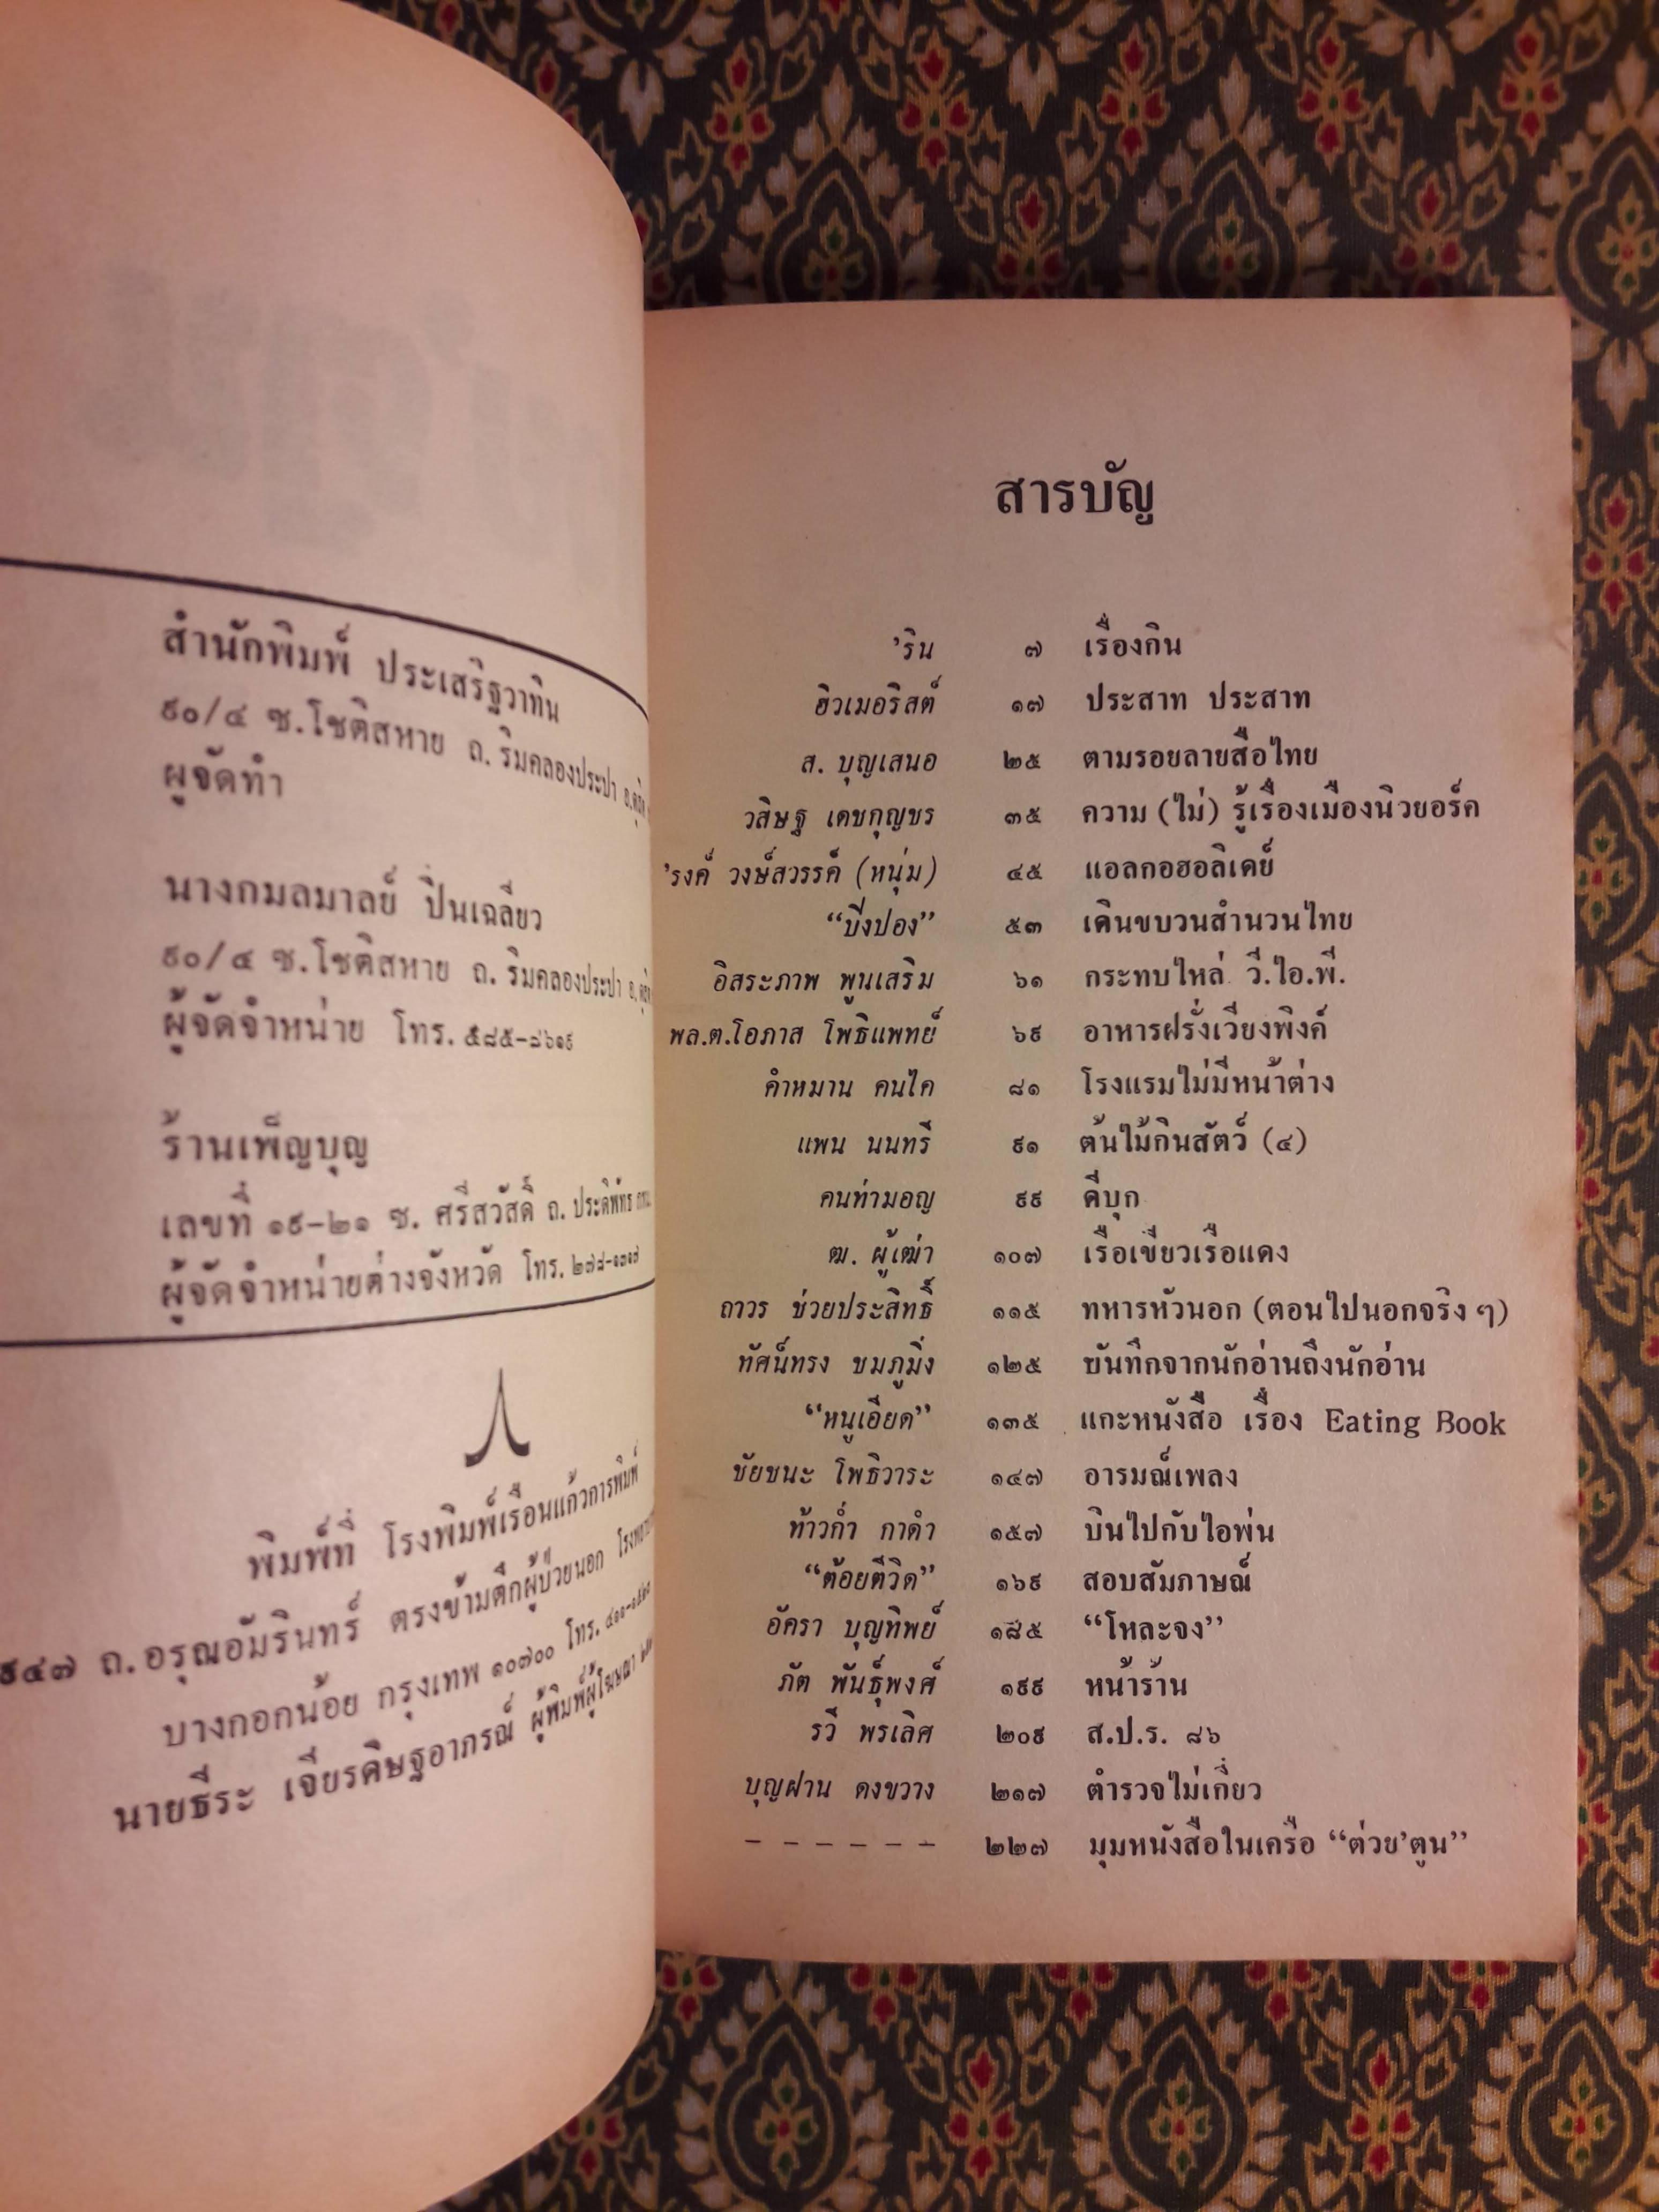 สำนักพิมพ์ ประเสริฐวาทิน
๙๐/๔ ซ.โชติสหาย ถ. ริมคลองประปา อ.ดุสิต
ผู้จัดทำ
นางกมลมาลย์ ปิ่นเฉลียว
๙๐/๔ ซ.โชติสหาย ถ. ริมคลองประปา อ.
ผู้จัดจำหน่าย โทร. ๕๘๕-๘๖๑๙
ร้านเพ็ญบุญ
เลขที่ ๑๙-๒๑ ซ. ศรีสวัสดิ์ ถ. ประดิพัทธ กทม.
ผู้จัดจำหน่ายต่างจังหวัด โทร. ๒๗๘-๑๓๑๗
พิมพ์ที่ โรงพิมพ์เรือนแก้วการพิมพ์
๙๔๗ ถ.อรุณอัมรินทร์ ตรงข้ามตึกผู้ป่วยนอก
บางกอกน้อย กรุงเทพ ๑๐๗๐๐ โทร.
นายธีระ เจียรดิษฐอาภรณ์ ผู้พิมพ์ผู้โฆษณา
สารบัญ
'ริน ๗ เรื่องกิน
ฮิวเมอริสต์ ๑๗ ประสาท ประสาท
ส. บุญเสนอ ๒๕ ตามรอยลายสือไทย
วสิษฐ เดชกุญชร ๓๕ ความ (ไม่) รู้เรื่องเมืองนิวยอร์ค
'รงค์ วงษ์สวรรค์ (หนุ่ม) ๔๕ แอลกอฮอลิเดย์
“บิ๋งปอง” ๕๓ เดินขบวนสำนวนไทย
อิสระภาพ พูนเสริม ๖๑ กระทบไหล่ วี.ไอ.พี.
พล.ต.โอภาส โพธิแพทย์ ๖๙ อาหารฝรั่งเวียงพิงค์
คำหมาน คนไค ๘๑ โรงแรมไม่มีหน้าต่าง
แพน นนทรี ๙๑ ต้นไม้กินสัตว์ (๔)
คนท่ามอญ ๙๙ ดีบุก
ฒ. ผู้เฒ่า ๑๐๗ เรือเขียวเรือแดง
ถาวร ช่วยประสิทธิ์ ๑๑๕ ทหารหัวนอก (ตอนไปนอกจริง ๆ)
ทัศน์ทรง ชมภูมิ่ง ๑๒๕ บันทึกจากนักอ่านถึงนักอ่าน
“หนูเอียด” ๑๓๕ แกะหนังสือ เรื่อง Eating Book
ชัยชนะ โพธิวาระ ๑๔๗ อารมณ์เพลง
ท้าวก่ำ กาดำ ๑๕๗ บินไปกับไอพ่น
“ต้อยตีวิด” ๑๖๙ สอบสัมภาษณ์
อัครา บุญทิพย์ ๑๘๕ “โหละจง”
ภัต พันธุ์พงศ์ ๑๙๙ หน้าร้าน
รวี พรเลิศ ๒๐๙ ส.ป.ร. ๘๖
บุญฝาน ดงขวาง ๒๑๗ ตำรวจไม่เกี่ยว
- - - - - - ๒๒๗ มุมหนังสือในเครือ “ต่วย'ตูน”